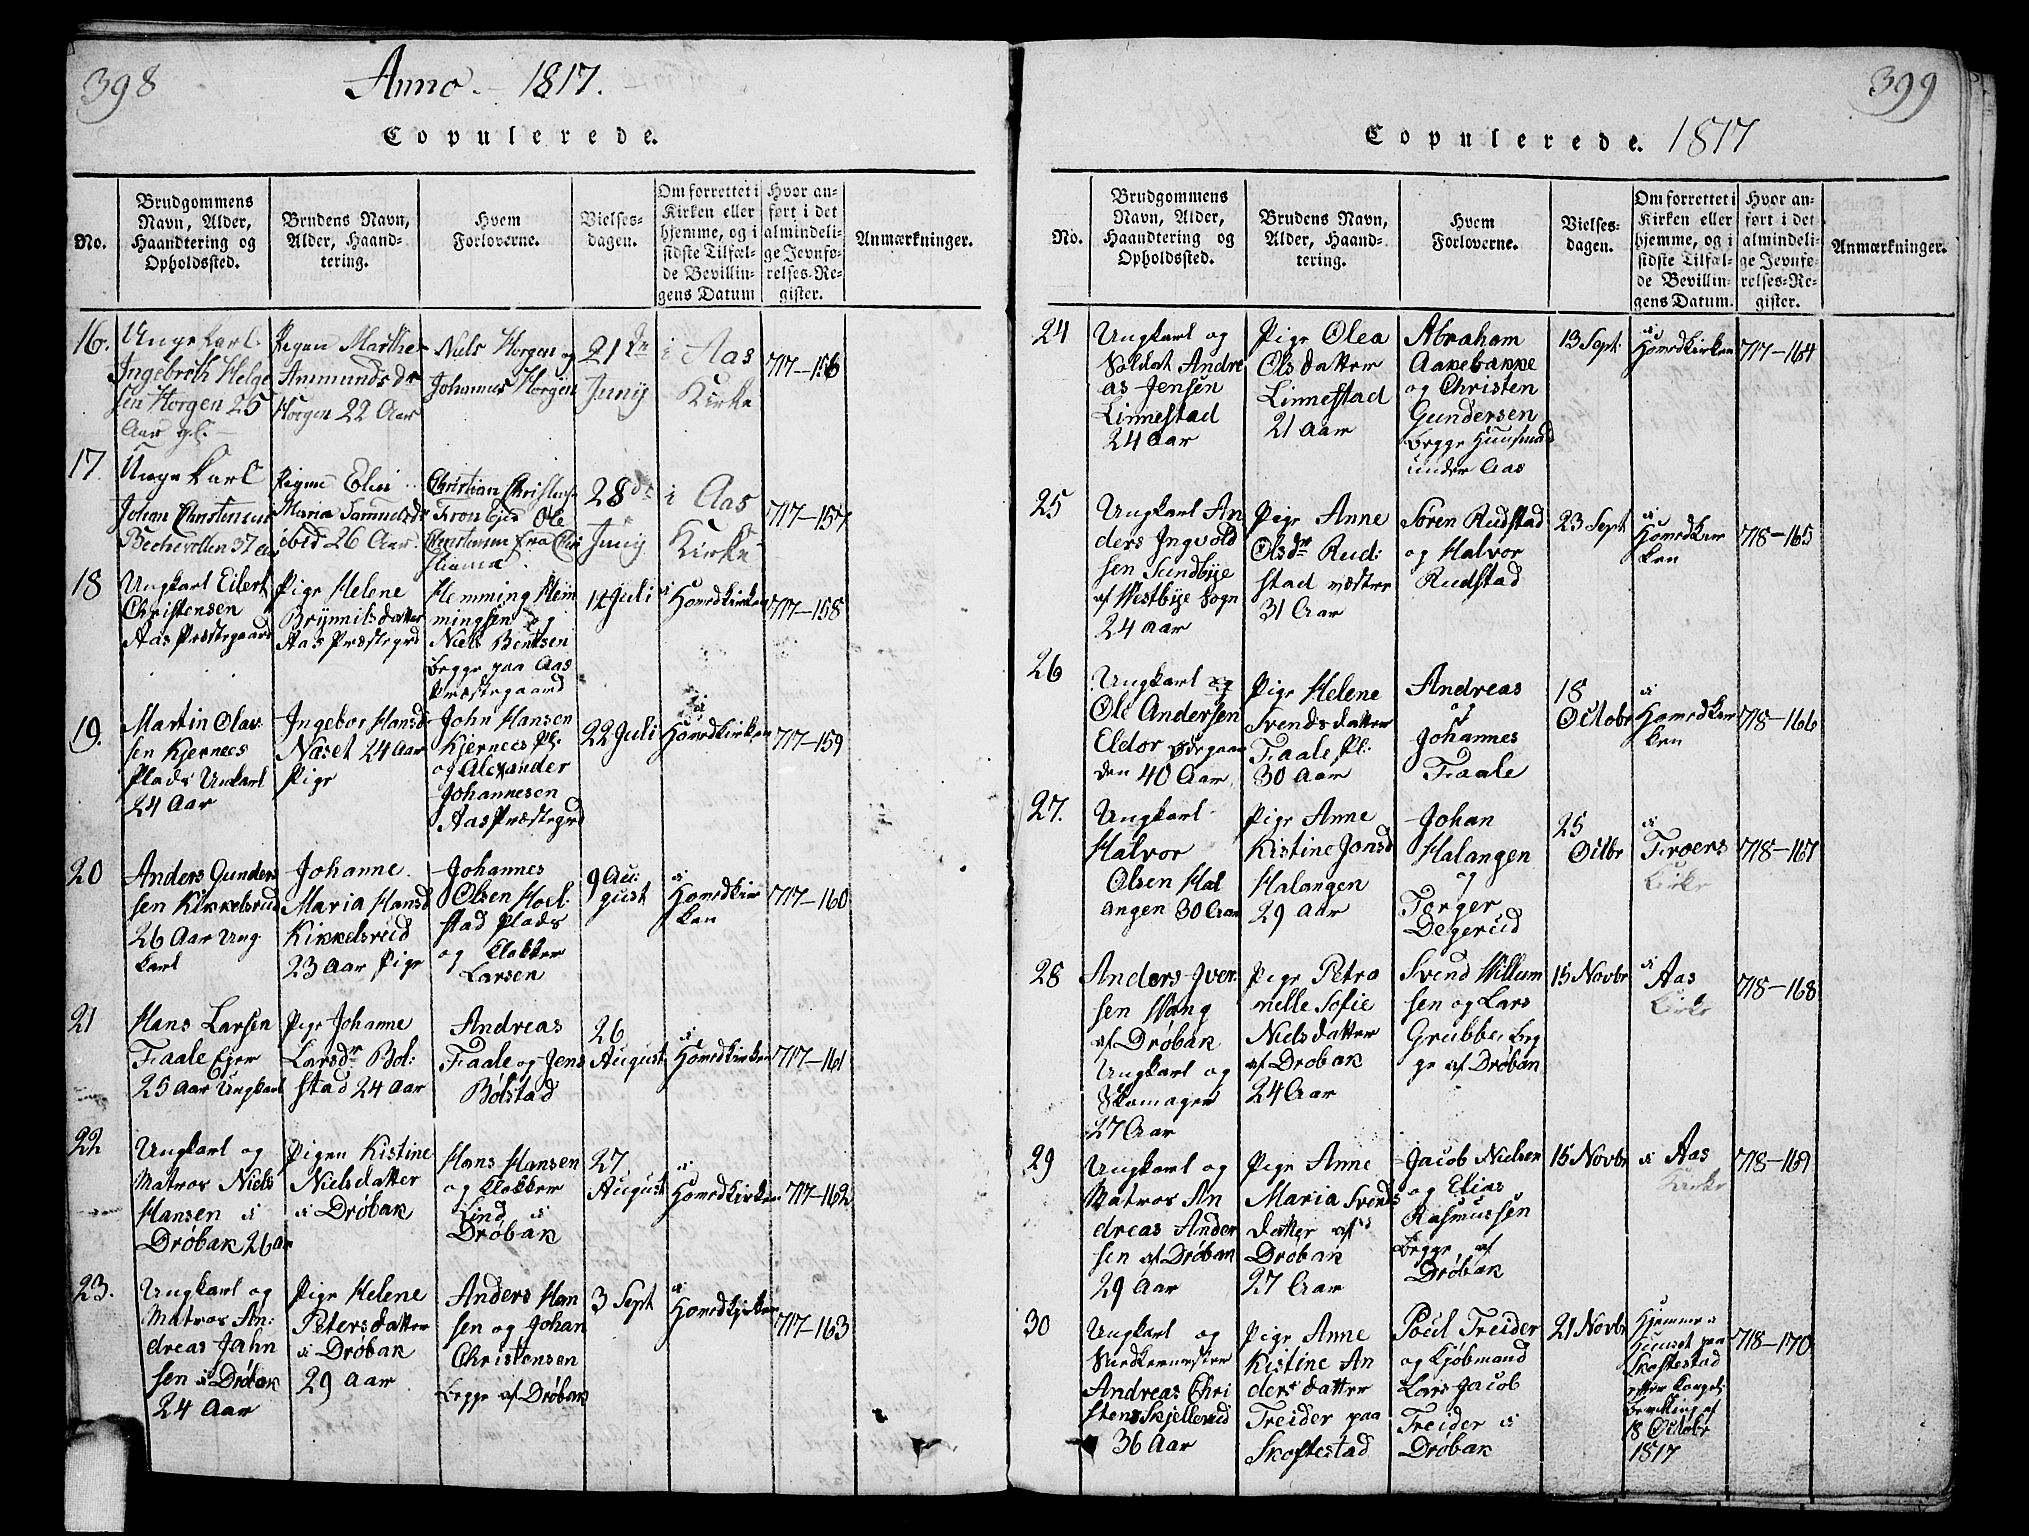 398
Anno. 1817.
Copulerede.
No.
Brudgommens
Navn, Alder,
Haandtering og
Opholdssted.
Brudens Navn,
Alder, Haand-
tering.
Hvem
Forloverne.
Vielses-
dagen.
Om forrettet i
Kirken eller
hjemme, og i
sidste Tilfæl-
de Bevillin-
gens Datum
Hvor an-
ført i det
almindeli-
ge Jevnfø-
relses-Re-
gister.
Anmærkninger.
16.
Unge Karl
Ingebreth Helge
sen Horgen 25
Aar gl.
Pigen Marthe
Anmundsdr
Horgen 22 Aar
Niels Horgen og
Johannes Horgen
21de
Junij
i Aas
Kirke
717-156
17.
Unge Karl
Johan Christensen
Pigen Elin
Maria Samuelsdr
ibid 26 Aar.
28de
Junij
i Aas
Kirke
717-157
18
Ungkarl Eilert
Christensen
Aas Præstegaard
Pige Helene
Brynnilsdatter
Aas Præstegrd
Hemming Hem
mingsen og
Niels Bentsen
begge paa Aas
Præstegaard
14 Juli
i
Hovedkirken
717-158
19.
Martin Olav
sen Kjernees
Plads Unkarl
24 Aar
Ingebor Hansd
Næset 24 Aar
Pige
John Hansen
Kjernees Pl:
og Alexander
Johannesen
Aas Præstegrd
22 Juli
i
Hovedkirken
717-159
20
Anders Gunders
sen Kikkelsrud
26 Aar Ung
karl
Johanne
Maria Hansd
Kikkelsrud
23 Aar Pige
Johannes
Olsen Hol
stad Plads
og Klokker
Larsen
9 Au:
gust
i
Hovedkir
ken
717-160
21
Hans Larsen
Faale Eger
25 Aar Ungkarl
Pige Johanne
Larsdr Bol:
stad 24 Aar
Andreas
Faale og Jens
Bølstad
26
August
i
Hovedkirken
717-161
22
Ungkarl og
Matros Niels
Hansen i
Drøbak 26 Aar
Pigen Kistine
Nielsdatter
i Drøbak
Hans Hansen
og Klokker
Lind i
Drøbak
27
August
i
Hovedkirken
717-162
23.
Ungkarl og
Matros An:
dreas Jahn
sen i Drøbak
24 Aar
Pige Helene
Petersdatter
i Drøbak
29 Aar
Anders Han
sen og Johan
Christensen
begge af Drøbak
3 Sept
i
Hovedkjrken
717-163
399
Copulerede. 1817
No.
Brudgommens
Navn, Alder,
Haandtering og
Opholdssted.
Brudens Navn,
Alder, Haand-
tering.
Hvem
Forloverne.
Vielses-
dagen.
Om forrettet i
Kirken eller
hjemme, og i
sidste Tilfæl-
de Bevillin-
gens Datum.
Hvor an-
ført i det
almindeli-
ge Jevnfø-
relses-Re-
gister.
Anmærkninger.
24
Ungkarl og
Soldat Andre
as Jensen
Linnestad
24 Aar
Pige Olea
Olsdatter
Linnestad
21 Aar
Abraham
Aakebakke
og Christen
Gundersen
begge Huusmd
under Aas
13 Sept.
i
Hovedkirken
717-164
25
Ungkarl An
ders Ingvold
sen Sundbye
af Westbye Sogn
24 Aar
Pige Anne
Olsdr Rud:
stad vestre
31 Aar
Søren Rudstad
og Halvor
Rudstad
23 Sept
i
Hovedkir
ken
718-165
26
Ungkarl og
Ole Andersen
Eldor Ødegaar
den 40 Aar
Pige Helene
Svendsdatter
Faale Pl:
30 Aar
Andreas
og
Johannes
Faale
18
Octobr
i
Hovedkir
ken
718-166
27.
Ungkarl
Halvor
Olsen Hal
angen 30 Aar
Pige Anne
Kistine Jonsd
Halangen
29 Aar
Johan
Halangen
og
Torger
Degerud
25
Octbr
i
Froens
Kirke
718-167
28
Anders Iver
sen Wang
af Drøbak
Ungkarl og
Skomager
27 Aar
Pige Petro
nelle Sofie
Nielsdatter
af Drøbak
24 Aar
Svend Willum
sen og Lars
Grubbe beg
ge af Drøbak
15 Novbr
i
Aas
Kirke
718-168
29
Ungkarl og
Matros An
dreas Ander
sen af Drøbak
29 Aar
Pige Anne
Maria Svends
datter af
Drøbak
27 Aar
Jacob Nielsen
og Elias
Rasmussen
begge af
Drøbak
15 Novbr
i Aas
Kirke
718-169
30
Ungkarl og
Andreas Chri
stens Skjellerud
36 Aar
Pige Anne
Kistine An
ders datter
Treider paa
Skoftestad
Poul Treider
og Kjøbmand
Lars Jacob
Treider i
Drøbak
21 Novbr
Hjemme i
Huuset paa
Skoftestad
efter kongel:
Bevilling af
18 Octobr
1817
718-170